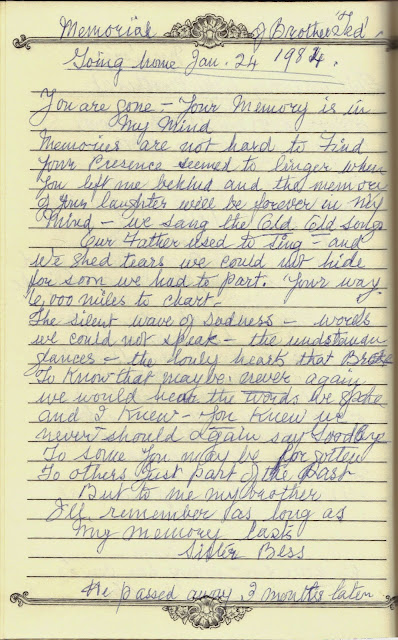 Memorial of Brother "Ted"
Going home Jan. 24 1984.
You are gone - Your Memory is in
My Mind
Memories are not hard to Find
Your Presence seemed to linger when
You left me behind and the memory
of your laughter will be forever in my
Mind - we sang the Old, Old songs
Our Father used to Sing - and
we shed tears we could not hide
for soon we had to part. Your way
6,000 miles to chart -
The silent wave of sadness - words
we could not speak - the
glances - the lonly heart that Broke
To Know that maybe never again
we would hear the words we spoke
and I Knew - You Knew we
never should again say Goodbye
To some You may be forgotten
To others Just part of the Past
But to me my brother
I'll remember as long as
My memory lasts
Sister Bess
He passed away, 2 months later